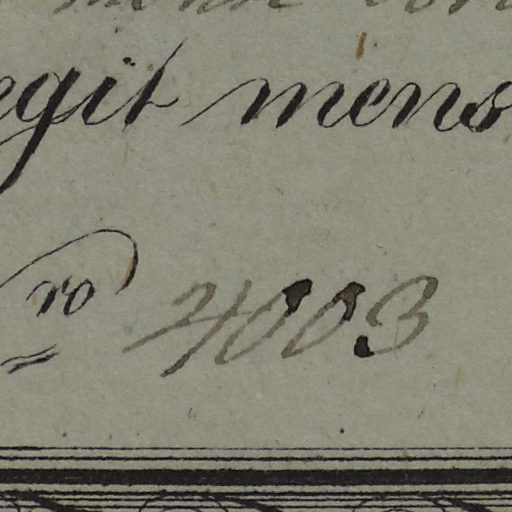 egit mens
ro 4003